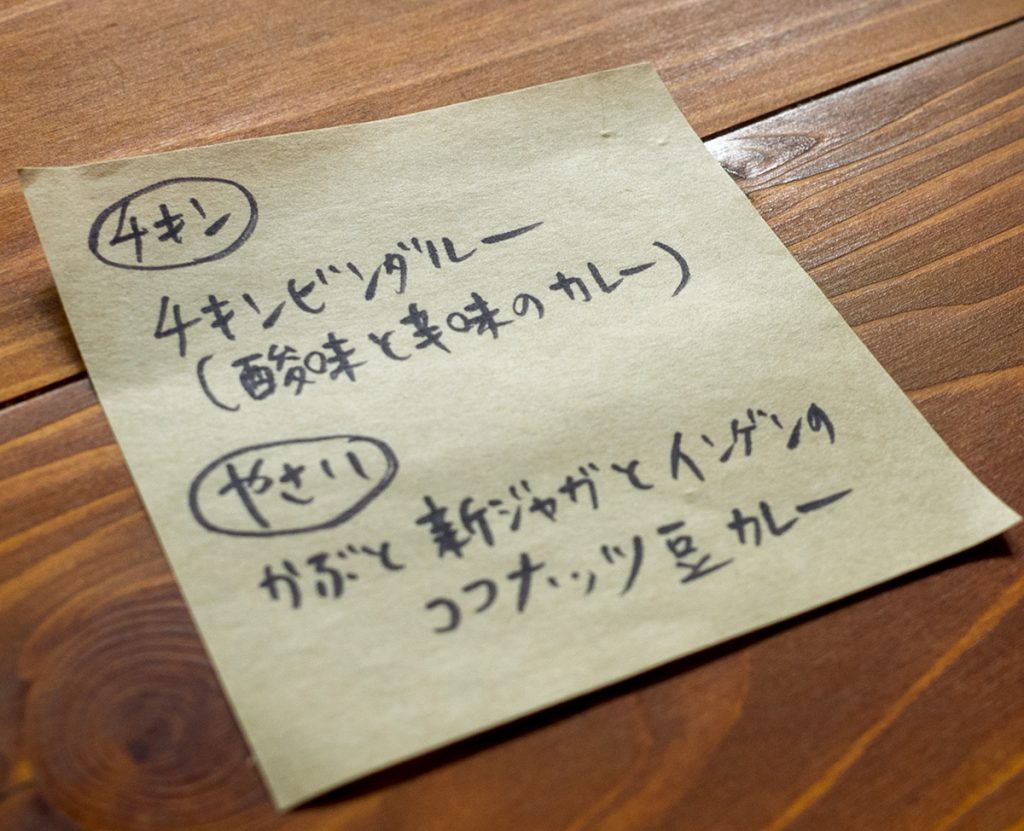 チキン
チキンビンダルー
(酸味と辛味のカレー)
やさい
かぶと新ジャガとインゲンの
ココナッツ豆カレー